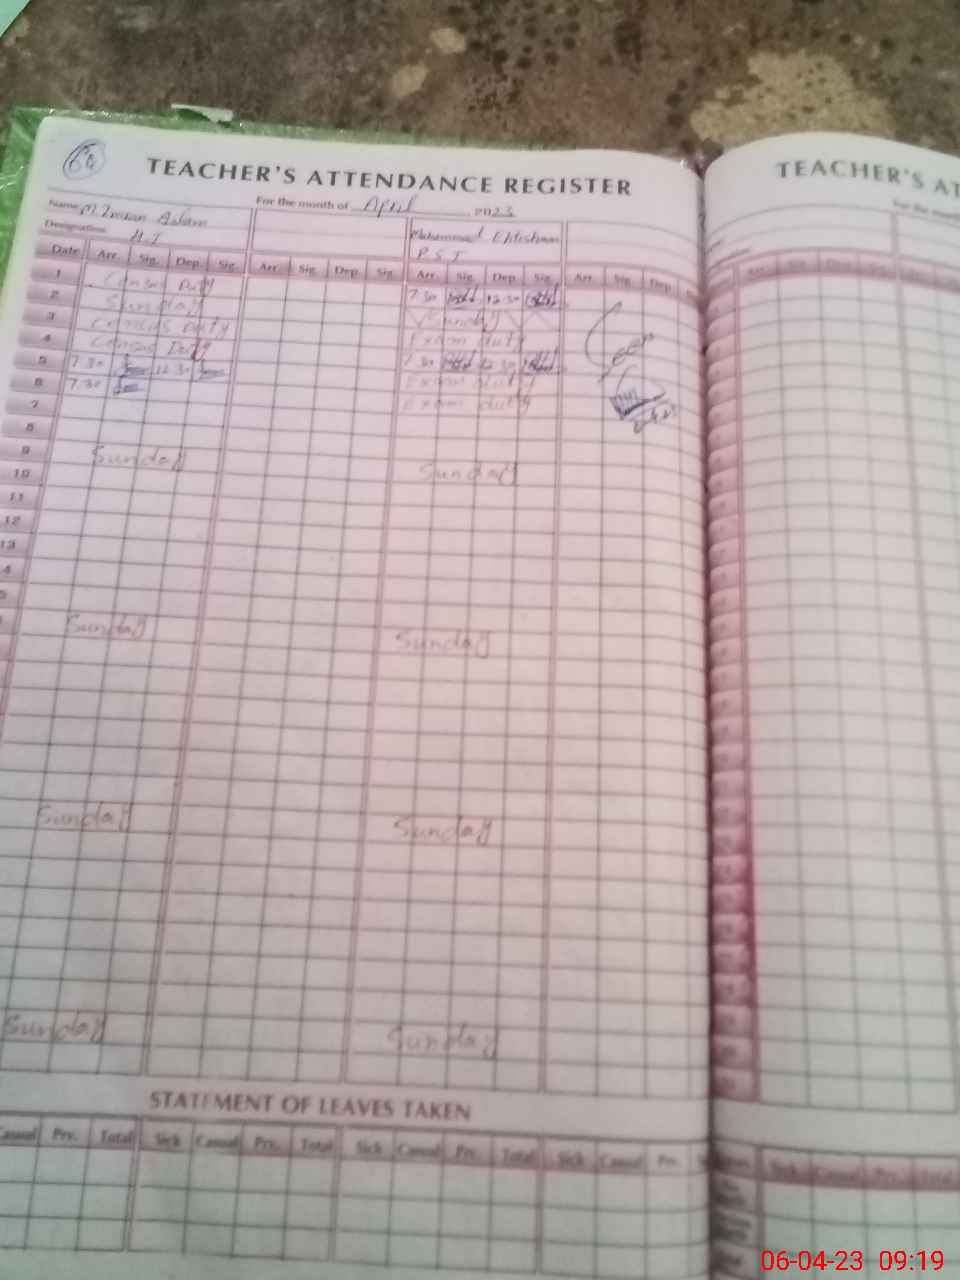 TEACHER'S ATTENDANCE REGISTER
Name M. Imran Aslam For the month of April 2023
Designation H.T Muhammad Ehtesham
P.S.T
Date Arr. Sig. Dep. Sig. Arr. Sig. Dep. Sig. Arr. Sig. Dep. Sig. Arr. Sig. Dep.
1 Census Duty 7 30 12 30
2 Sunday Sunday
3 Census Duty Exam duty
4 Census Duty 7 30 12 30
5 7 30 12 30 Exam duty
6 7 30 Exam duty
7
8
9 Sunday Sunday
10
11
12
13
4
5
Sunday Sunday
Sunday Sunday
Sunday Sunday
STATEMENT OF LEAVES TAKEN
Casual Prv. Total Sick Casual Prv. Total Sick Casual Prv. Total Sick Casual Prv.
TEACHER'S AT
For the month
Sick Casual Prv. Total
06-04-23 09:19